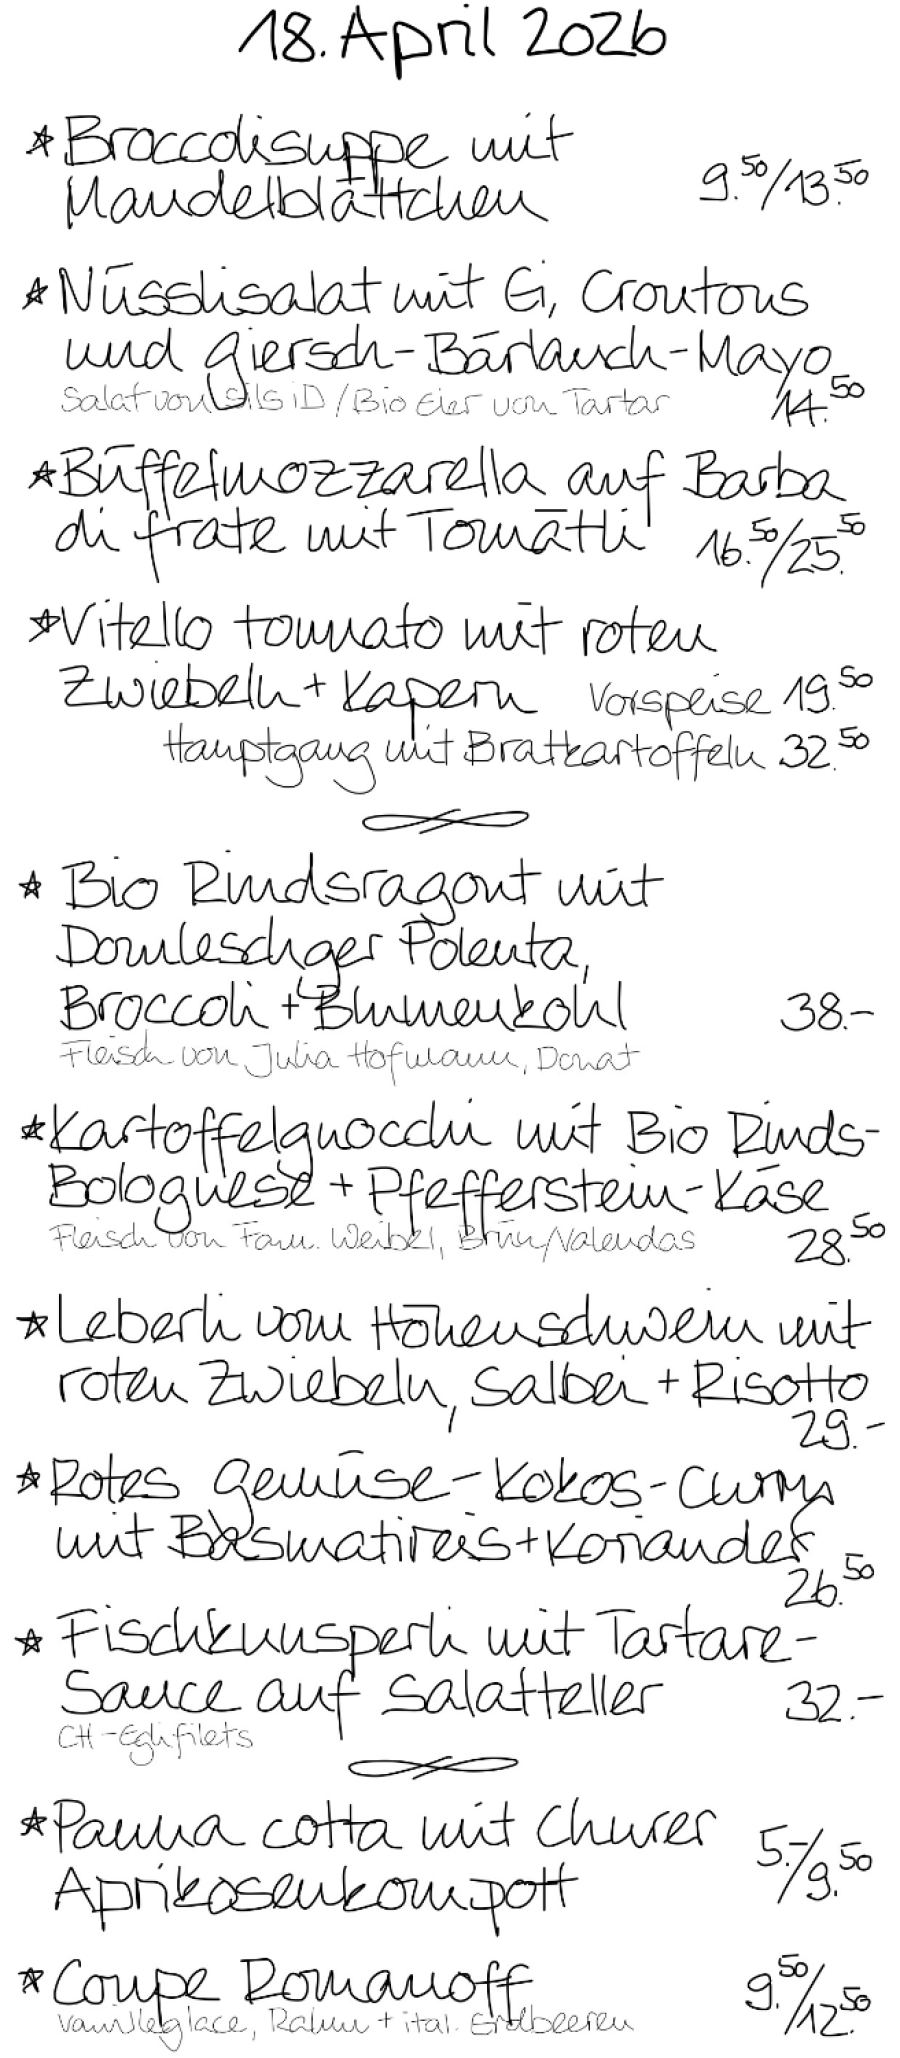 18. April 2026
* Broccolisuppe mit
Mandelblättchen 9.50/13.50
* Nüsslisalat mit Ei, Croutons
und Giersch-Bärlauch-Mayo
Salat von Sils iD / Bio Eier von Tartar 14.50
* Büffelmozzarella auf Barba
di frate mit Tomätli 16.50/25.50
* Vitello tonnato mit roten
Zwiebeln + Kapern Vorspeise 19.50
Hauptgang mit Bratkartoffeln 32.50
* Bio Rindsragout mit
Domleschger Polenta,
Broccoli + Blumenkohl 38.-
Fleisch von Julia Hofmann, Donat
* Kartoffelgnocchi mit Bio Rinds-
Bolognese + Pfefferstein-Käse
Fleisch von Fam. Weibel, Brün/Valendas 28.50
* Leberli vom Höhenschwein mit
roten Zwiebeln, Salbei + Risotto
29.-
* Rotes Gemüse-Kokos-Curry
mit Basmatireis + Koriander
26.50
* Fischknusperli mit Tartare-
Sauce auf Salatteller 32.-
CH-Eglifilets
* Panna cotta mit Churer
Aprikosenkompott 5.-/9.50
* Coupe Romanoff 9.50/12.50
Vanilleglace, Rahm + ital. Erdbeeren